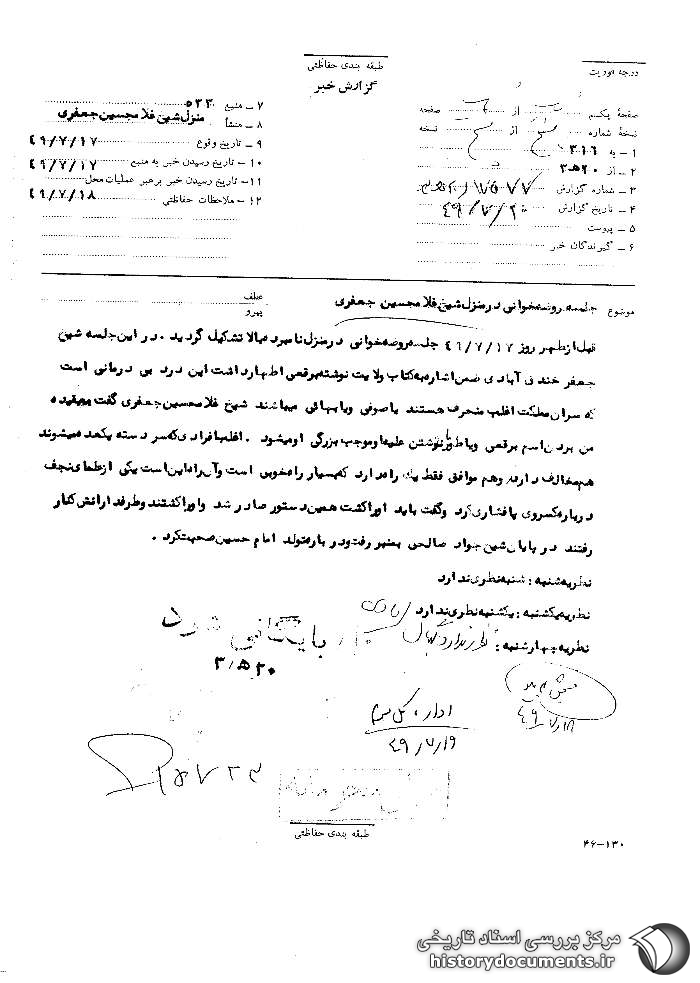 طبقه بندی حفاظتی
گزارش خبر
درجه فوریت
صفحه یکم از صفحه
نسخه شماره از نسخه
۱ – به ۳۱۶
۲ – از ۲۰ه۳
۳ – شماره گزارش
۴ – تاریخ گزارش ۴۹/۷/۲۰
۵ – پیوست
۶ – گیرندگان خبر
۷ – منبع ۵۳۳۰
۸ – منشأ منزل شیخ غلامحسین جعفری
۹ – تاریخ وقوع ۴۹/۷/۱۷
۱۰ – تاریخ رسیدن خبر به منبع ۴۹/۷/۱۷
۱۱ – تاریخ رسیدن خبر برهبر عملیات محل
۱۲ – ملاحظات حفاظتی ۴۹/۷/۱۸
موضوع جلسه روضه خوانی در منزل شیخ غلامحسین جعفری
عطف
پیرو
قبل از ظهر روز ۴۹/۷/۱۷ جلسه روضه خوانی در منزل نامبرده بالا تشکیل گردید . در این جلسه شیخ
جعفر خندق آبادی ضمن اشاره به کتاب ولایت نوشته برقعی اظهار داشت این درد بی درمانی است
که سران مملکت اغلب منحرف هستند یا صوفی و یا بهائی میباشند شیخ غلامحسین جعفری گفت بعقیده
من بردن اسم برقعی و یا طومار نوشتن علیه او موجب بزرگی او میشود . اغلب افرادی که سر دسته یکعده میشوند
هم مخالف دارند و هم موافق فقط یک راه دارد که بسیار راه خوبی است و آن راه این است یکی از علمای نجف
درباره کسروی پافشاری کرد و گفت باید او را کشت همین دستور صادر شد و او را کشتند و طرفدارانش کنار
رفتند در پایان شیخ جواد صالحی بمنبر رفت و درباره تولد امام حسین صحبت کرد .
نظریه شنبه : شنبه نظری ندارد
نظریه یکشنبه : یکشنبه نظری ندارد
نظریه چهارشنبه : نظری ندارد
بایگانی شود
۲۰ه۳
۴۹/۷/۱۸
اداره کل سوم
۴۹/۷/۱۹
طبقه بندی حفاظتی
۴۶–۱۳۰
مرکز بررسی اسناد تاریخی
historydocuments.ir